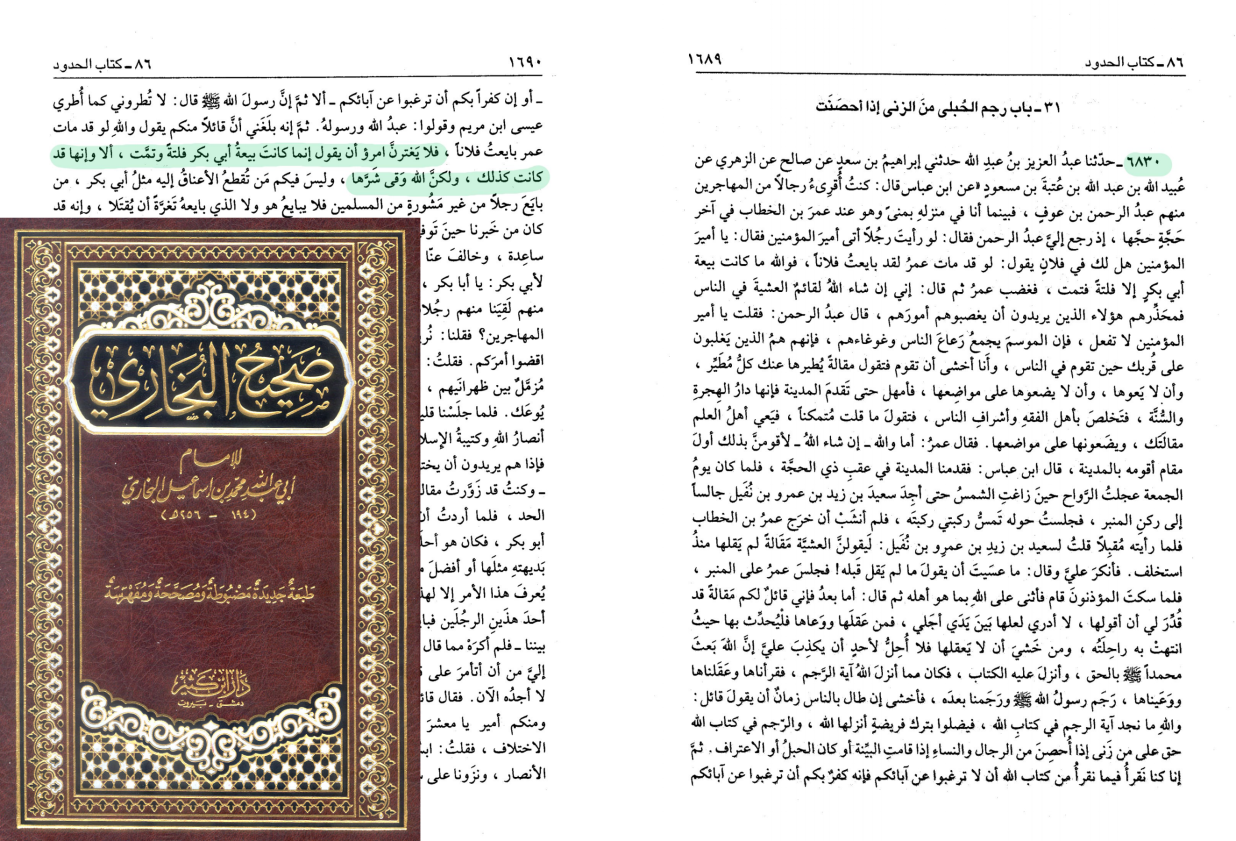 ٨٦ ـ كتاب الحدود
١٦٨٩
٣١ ـ باب رجم الحُبلى منَ الزنى إذا أحصَنَت
٦٨٣٠ ـ حدّثنا عبدُ العزيز بنُ عبدِ الله حدثني إبراهيمُ بن سعدٍ عن صالح عن الزهري عن
عُبيد الله بن عبد الله بن عُتبةَ بن مسعودٍ «عن ابن عباس قال: كنتُ أُقرِىءُ رجالاً من المهاجرين
منهم عبدُ الرحمن بن عوفٍ ، فبينما أنا في منزلهِ بمنىً وهو عند عمرَ بن الخطاب في آخر
حَجَّةٍ حجَّها ، إذ رجع إليَّ عبدُ الرحمن فقال: لو رأيتَ رجُلاً أتى أميرَ المؤمنين فقال: يا أميرَ
المؤمنين هل لك في فلانٍ يقول: لو قد مات عمرُ لقد بايعتُ فلاناً ، فوالله ما كانت بيعة
أبي بكرٍ إلا فلتةً فتمت ، فغضب عمرُ ثم قال: إني إن شاء اللهُ لقائمٌ العشيةَ في الناس
فمحَذِّرهم هؤلاء الذين يريدون أن يغصبوهم أمورَهم ، قال عبدُ الرحمن: فقلت يا أمير
المؤمنين لا تفعل ، فإن الموسمَ يجمعُ رَعاعَ الناس وغوغاءهم ، فإنهم همُ الذين يَغلبون
على قُربك حين تقوم في الناس ، وأنا أخشى أن تقوم فتقول مقالةً يُطيرها عنك كلُّ مُطَيِّر ،
وأن لا يَعوها ، وأن لا يضعوها على مواضِعها ، فأمهل حتى تَقدمَ المدينة فإنها دارُ الهجرةِ
والسُّنَّة ، فتَخلصَ بأهل الفقهِ وأشرافِ الناس ، فتقولَ ما قلت مُتمكناً ، فيَعي أهلُ العلم
مقالَتَك ، ويضَعونها على مواضعها. فقال عمرُ: أما والله ـ إن شاء اللهُ ـ لأقومنَّ بذلك أولَ
مقام أقومه بالمدينة ، قال ابن عباس: فقدمنا المدينة في عقبِ ذي الحجَّة ، فلما كان يومُ
الجمعة عجلتُ الرَّواح حينَ زاغتِ الشمسُ حتى أجِدَ سعيدَ بن زيد بن عمرو بن نُفَيل جالساً
إلى ركنِ المنبر ، فجلستُ حوله تَمسُّ ركبتي ركبتَه ، فلم أنشَبْ أن خرَج عمرُ بن الخطاب
فلما رأيته مُقبِلاً قلتُ لسعيد بن زيدِ بن عمرِو بن نُفَيل: لَيقولنَّ العشيَّة مَقَالةً لم يَقلها منذُ
استخلف. فأنكرَ عليَّ وقال: ما عسَيتَ أن يقولَ ما لم يَقل قبله! فجلسَ عمرُ على المنبر ،
فلما سكتَ المؤذنونَ قام فأثنى على الله بما هو أهله ثم قال: أما بعدُ فإني قائلٌ لكم مقالةً قد
قُدِّرَ لي أن أقولها ، لا أدري لعلها بَينَ يَدَي أجَلي ، فمن عَقَلها ووَعاها فلْيُحدِّث بها حيثُ
انتهتْ به راحِلَتُه ، ومن خَشيَ أن لا يَعقلها فلا أُحِلُّ لأحدٍ أن يكذِبَ عليَّ إنَّ اللهَ بَعَثَ
محمداً ﷺ بالحق ، وأنزلَ عليه الكتاب ، فكان مما أنزلَ اللهُ آية الرَّجم ، فقرأناها وعَقَلناها
ووَعَيناها ، رَجَم رسولُ الله ﷺ ورَجَمنا بعدَه ، فأخشى إن طال بالناس زمانٌ أن يقولَ قائل:
واللهِ ما نجد آيةَ الرجم في كتابِ الله ، فيضلوا بتركِ فريضةٍ أنزلها الله ، والرَّجم في كتاب الله
حق على من زَنى إذا أُحصِنَ من الرجال والنساءِ إذا قامتِ البيِّنة أو كان الحبلُ أو الاعتراف. ثمَّ
إنا كنا نَقرأُ فيما نقرأُ من كتاب الله أن لا ترغبوا عن آبائكم فإنه كفرٌ بكم أن ترغبوا عن آبائكم
٨٦ ـ كتاب الحدود
١٦٩٠
ـ أو إن كفراً بكم أن ترغبوا عن آبائكم ـ ألا ثمَّ إنَّ رسولَ الله ﷺ قال: لا تُطروني كما أُطري
عيسى ابن مريم وقولوا: عبدُ الله ورسولهُ. ثمَّ إنه بلَغَني أنَّ قائلاً منكم يقول واللهِ لو قد مات
عمر بايعتُ فلاناً ، فلا يَغترنَّ امرؤ أن يقول إنما كانت بيعةُ أبي بكر فلتةً وتمَّت ، ألا وإنها قد
كانت كذلك ، ولكنَّ الله وَقى شَرَّها ، وليسَ فيكم مَن تُقطعُ الأعناقُ إليه مثلُ أبي بكر ، من
بايَعَ رجلاً من غير مَشُورةٍ من المسلمين فلا يبايعُ هو ولا الذي بايعهُ تَغرَّةً أن يُقتَلا ، وإنه قد
كان من خَبرنا حينَ توفـ
ساعِدة ، وخالفَ عنّا
لأبي بكر: يا أبا بكر ،
منهم لَقِيَنا منهم رجُلا
المهاجرين؟ فقلنا: نُر
اقضوا أمرَكم. فقلتُ:
مُزمَّلٌ بين ظهرانَيهم ،
يُوعَك. فلما جلَسْنا قلي
أنصارُ اللهِ وكتيبةُ الإسلا
فإذا هم يريدون أن يخت
ـ وكنتُ قد زَوَّرتُ مقال
الحد ، فلما أردتُ أن
أبو بكر ، فكان هو أحل
بَديهتهِ مثلَها أو أفضلَ م
يُعرفَ هذا الأمر إلا لهذ
أحدَ هذَينِ الرجُلَين فبا
بيننا ـ فلم أكرَهْ مما قال
إليَّ من أن أتأمرَ على ق
لا أجدُه الآن. فقال قائ
ومنكم أمير يا معشرَ
الاختلاف ، فقلتُ: ابس
الأنصار ، ونزَونا على س
صَحِيحُ البُخَارِي
للإمام
أبي عبد الله محمد بن إسماعيل البخاريّ
(١٩٤ – ٢٥٦هـ)
طَبعَةٌ جَدِيدَةٌ مَضبُوطَةٌ وَمُصَحَّحَةٌ وَمُفَهْرَسَةٌ
دَارُ ابْنِ كَثِيرٍ
دمشق – بيروت